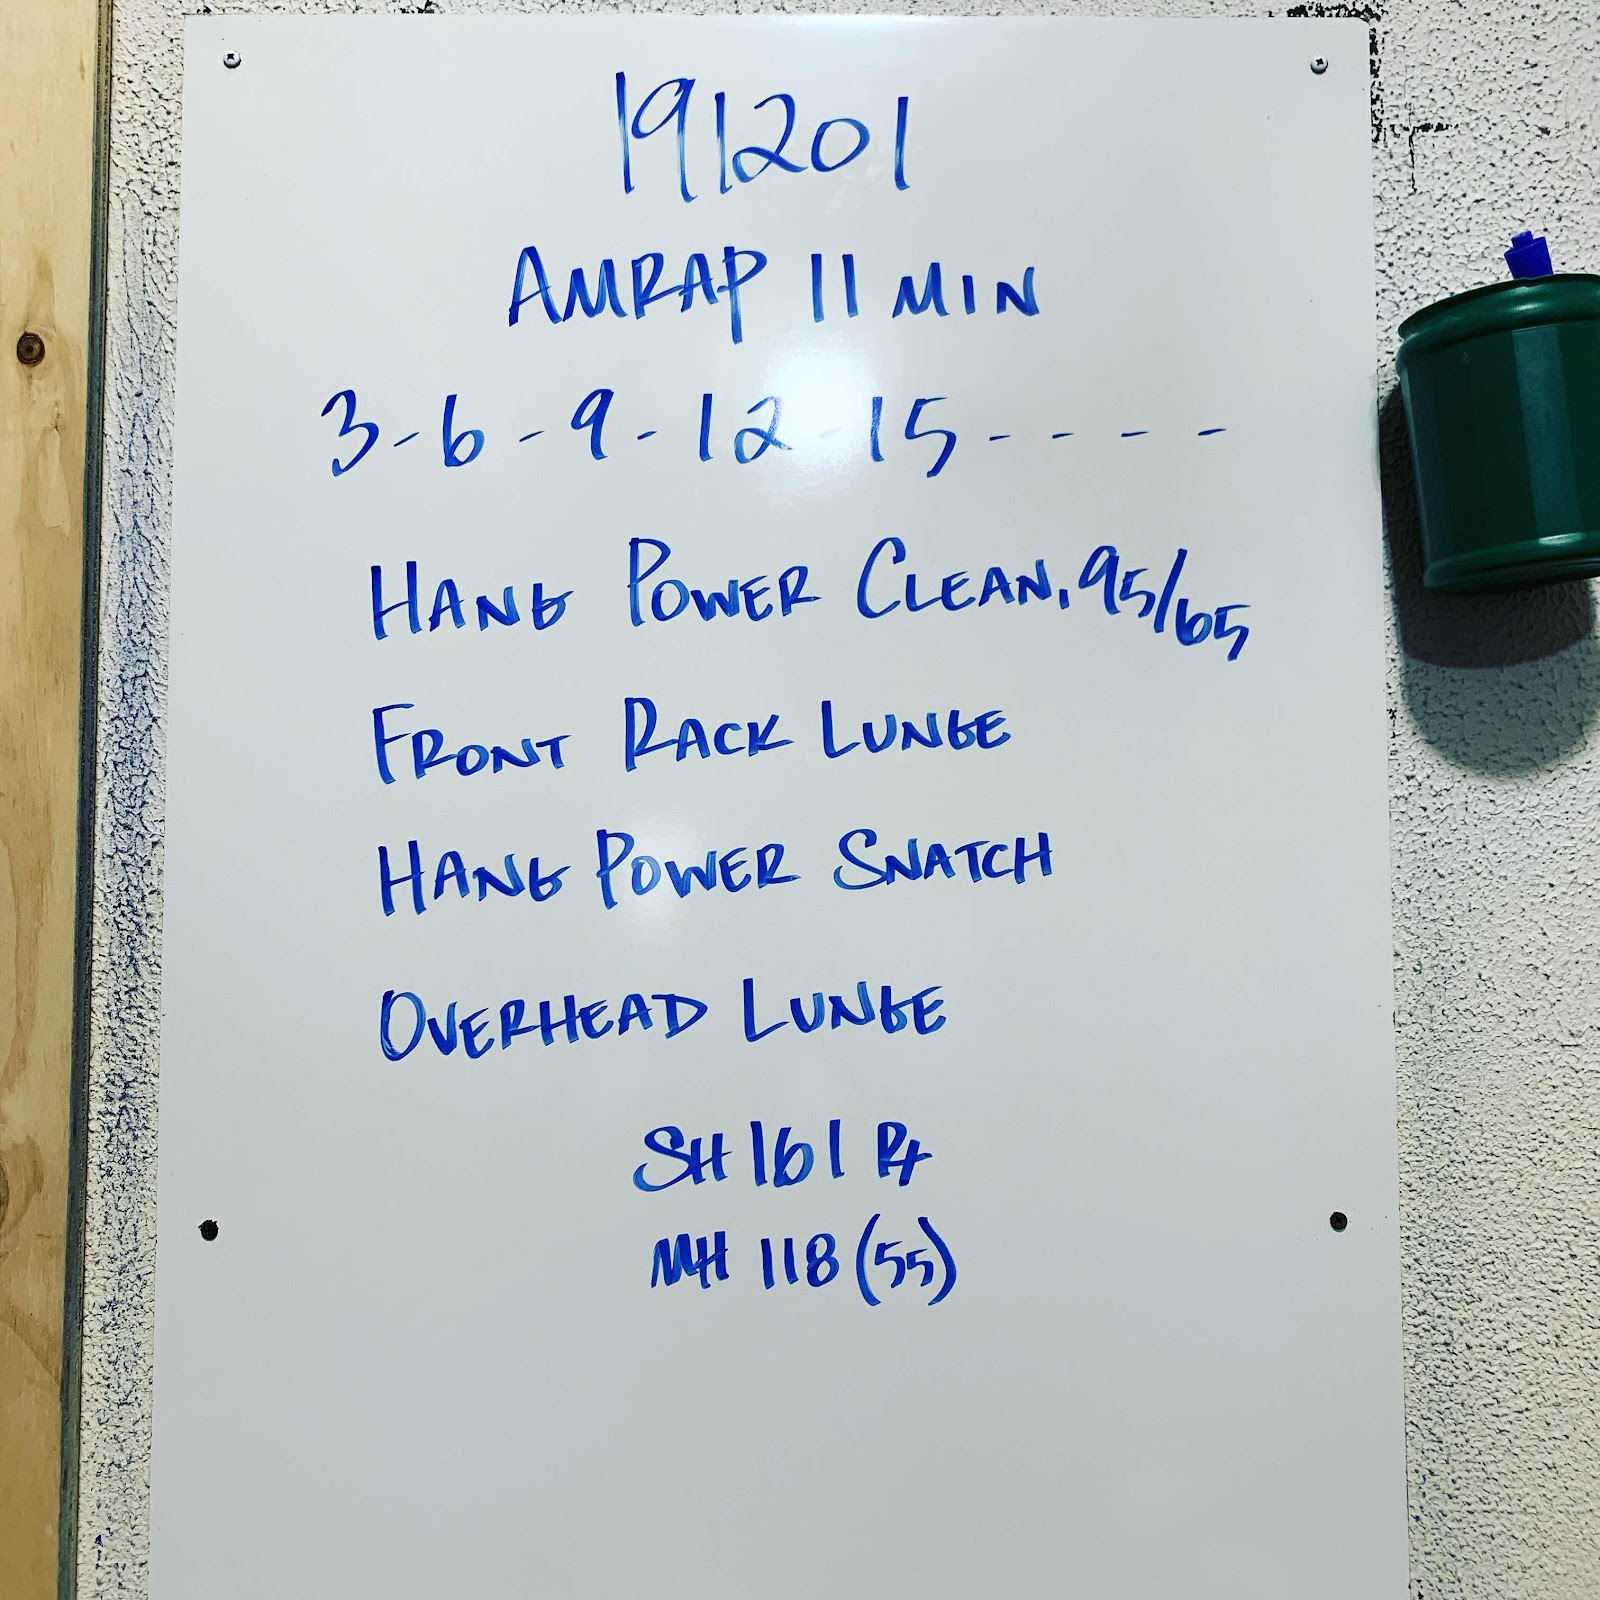 191201
AMRAP 11 MIN
3-6-9-12-15----
HANG POWER CLEAN, 95/65
FRONT RACK LUNGE
HANG POWER SNATCH
OVERHEAD LUNGE
SH 161 Rx
MH 118 (55)